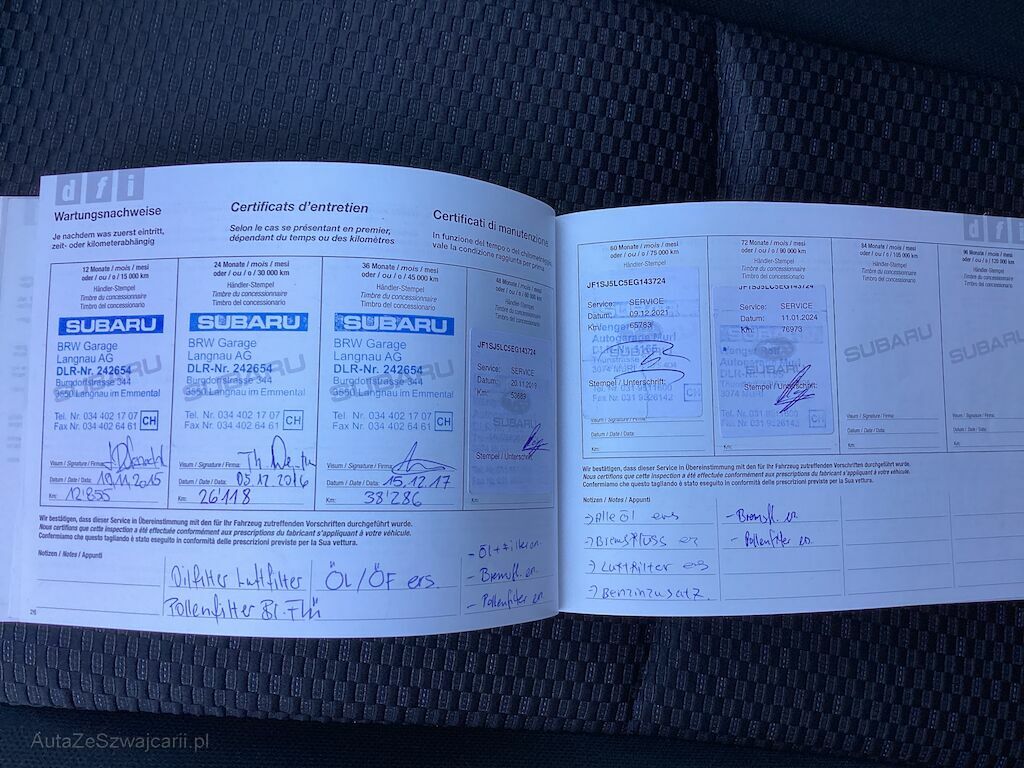 dfi
Wartungsnachweise
Je nachdem was zuerst eintritt,
zeit- oder kilometerabhängig
Certificats d'entretien
Selon le cas se présentant en premier,
dépendant du temps ou des kilomètres
Certificati di manutenzione
In funzione del tempo o del chilometraggio,
vale la condizione raggiunta per prima
12 Monate / mois / mesi
oder / ou / o / 15 000 km
Händler-Stempel
Timbre du concessionnaire
Timbro del concessionario
SUBARU
BRW Garage
Langnau AG
DLR-Nr. 242654
Burgdorfstrasse 344
3550 Langnau im Emmental
Tel. Nr. 034 402 17 07
Fax Nr. 034 402 64 61
CH
Visum / Signature / Firma:
Datum / Date / Data: 10.11.2015
Km: 12'855
24 Monate / mois / mesi
oder / ou / o / 30 000 km
Händler-Stempel
Timbre du concessionnaire
Timbro del concessionario
SUBARU
BRW Garage
Langnau AG
DLR-Nr. 242654
Burgdorfstrasse 344
3550 Langnau im Emmental
Tel. Nr. 034 402 17 07
Fax Nr. 034 402 64 61
CH
Visum / Signature / Firma:
Datum / Date / Data: 05.12 2016
Km: 26'118
36 Monate / mois / mesi
oder / ou / o / 45 000 km
Händler-Stempel
Timbre du concessionnaire
Timbro del concessionario
SUBARU
BRW Garage
Langnau AG
DLR-Nr. 242654
Burgdorfstrasse 344
3550 Langnau im Emmental
Tel. Nr. 034 402 17 07
Fax Nr. 034 402 64 61
CH
Visum / Signature / Firma:
Datum / Date / Data: 15.12.17
Km: 38'286
48 Monate / mois / mesi
oder / ou / o / 60 000 km
Händler-Stempel
Timbre du concessionnaire
Timbro del concessionario
JF1SJ5LC5EG143724
Service: SERVICE
Datum: 20.11.2019
Km: 50689
Stempel / Unterschrift:
Wir bestätigen, dass dieser Service in Übereinstimmung mit den für Ihr Fahrzeug zutreffenden Vorschriften durchgeführt wurde.
Nous certifions que cette inspection a été effectuée conformément aux prescriptions du fabricant s'appliquant à votre véhicule.
Confermiamo che questo tagliando è stato eseguito in conformità delle prescrizioni previste per la Sua vettura.
Notizen / Notes / Appunti
Ölfilter Luftfilter
Pollenfilter Br.Flü
ÖL/ÖF ers.
- Öl + Filter en.
- Bremsfl. en.
- Pollenfilter en.
26
60 Monate / mois / mesi
oder / ou / o / 75 000 km
Händler-Stempel
JF1SJ5LC5EG143724
Service: SERVICE
Datum: 09.12.2021
Km: 65783
Stempel / Unterschrift:
Visum / Signature / Firma:
Datum / Date / Data:
Km:
72 Monate / mois / mesi
oder / ou / o / 90 000 km
Händler-Stempel
Timbre du concessionnaire
Timbro del concessionario
JF1SJ5LC5EG143724
Service: SERVICE
Datum: 11.01.2024
Km: 76973
Stempel / Unterschrift:
84 Monate / mois / mesi
oder / ou / o / 105 000 km
Händler-Stempel
Timbre du concessionnaire
Timbro del concessionario
SUBARU
Visum / Signature / Firma:
Datum / Date / Data:
Km:
dfi
96 Monate / mois / mesi
oder / ou / o / 120 000 km
SUBARU
Km:
Wir bestätigen, dass dieser Service in Übereinstimmung mit den für Ihr Fahrzeug zutreffenden Vorschriften durchgeführt wurde.
Nous certifions que cette inspection a été effectuée conformément aux prescriptions du fabricant s'appliquant à votre véhicule.
Confermiamo che questo tagliando è stato eseguito in conformità delle prescrizioni previste per la Sua vettura.
Notizen / Notes / Appunti
→ Alle Öl ers
→ Bremsflüss er
→ Luftfilter ers
→ Benzinzusatz
- Bremsfl. en.
- Pollenfilter en.
AutaZeSzwajcarii.pl